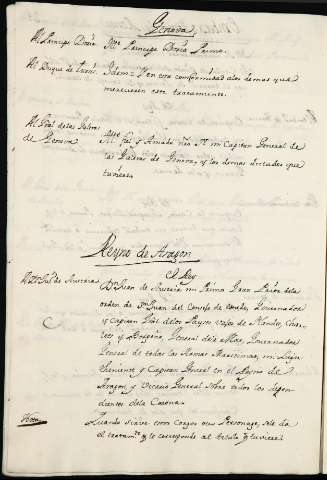 Genova
Al Principe Doria Ill.e Principe Doria Primo.
Al Duque de Idem: Y en esta conformidad a los demas q.e
merecieren este tratamiento.
Al Gral de las Galeras
de Genova Ill.e fiel y Amado nro N. mi Capitan General de
las Galeras de Genova, y los demas dictados que
tuviere.
Reyno de Aragon
El Rey
D.n Juan de Austria mi Primo Gran Prior de la
orden de S.n Juan del Consejo de estado, Governador
y Capitan Gral de los Payses vajos de Flandes,
y Borgoña, General de la Mar, Governador
General de todas las Armas Maritimas, mi Lugar
theniente y Capitan General en el Reyno de
Aragon, y Vicario General sobre todos los depen-
dientes de la Corona.
Nota Quando sirve otros cargos un Personage, se le da
el tratam.to q.e le corresponde al titulo q.e tuviere.